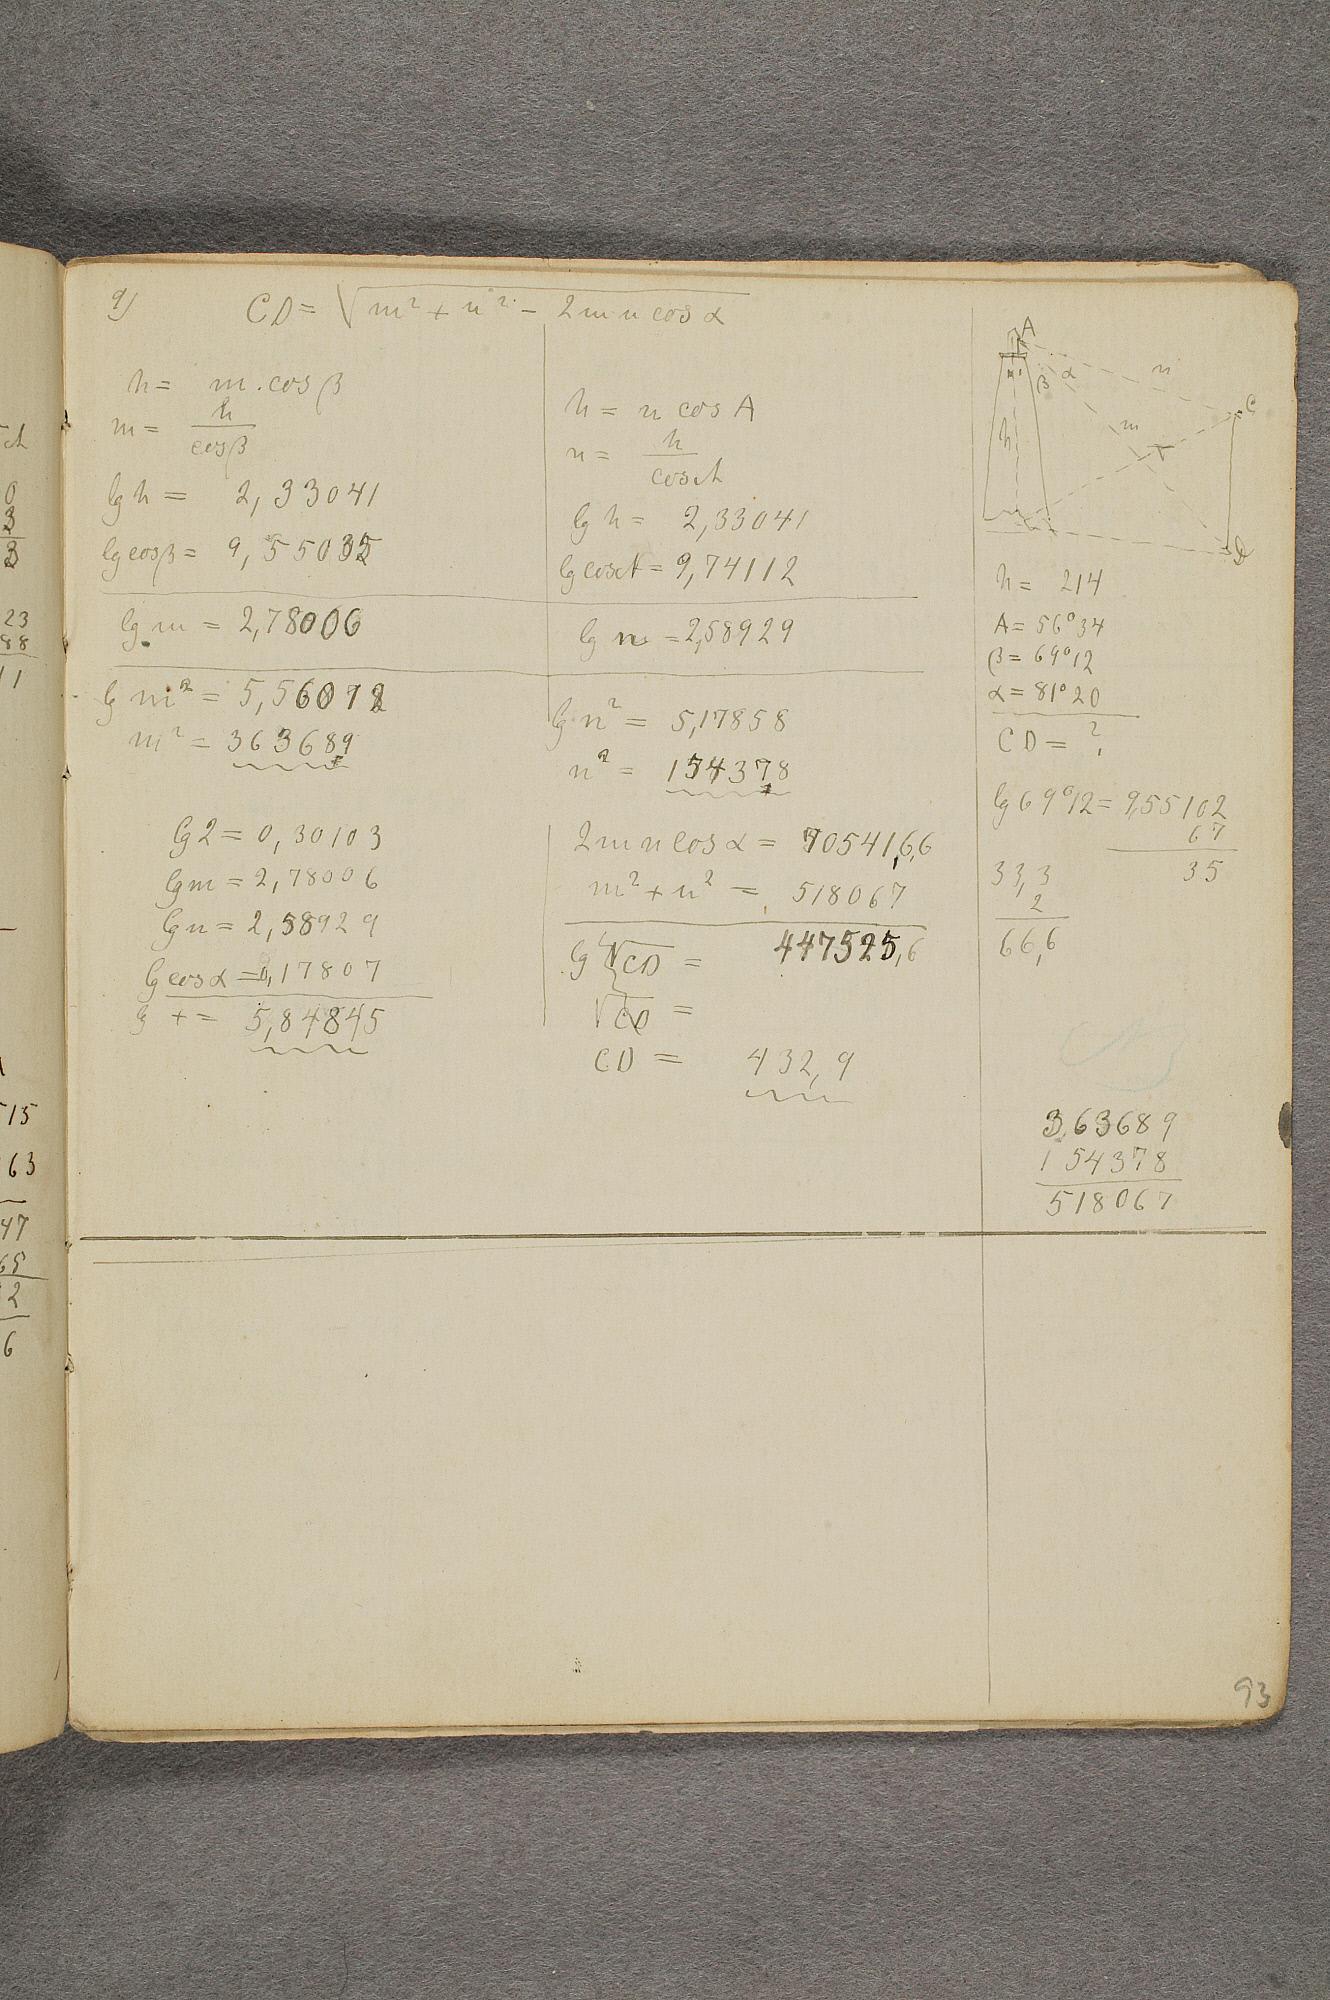 9)
CD = √m² + n² - 2mn cos α
h = m . cos β
m = h
cos β
lg h = 2,33041
lg cos β = 9,55035
lg m = 2,78006
lg m² = 5,56012
m² = 363689
lg 2 = 0,30103
lg m = 2,78006
lg n = 2,58929
lg cos α = 0,17807
lg + = 5,84845
h = n cos A
n = h
cos A
lg h = 2,33041
lg cos A = 9,74112
lg n = 2,58929
lg n² = 5,17858
n² = 154378
2mn cos α = 70541,6,6
m² + n² = 518067
lg √CD = 447525,6
√CD =
CD = 432,9
A
β α n
m
h
C
D
h = 214
A = 56°34
β = 69°12
α = 81°20
CD = ?
lg 69°12 = 9,55102
67
35
33,3
2
66,6
3,63689
154378
518067
93
ch
0
3
3
23
88
11
515
63
47
65
2
6